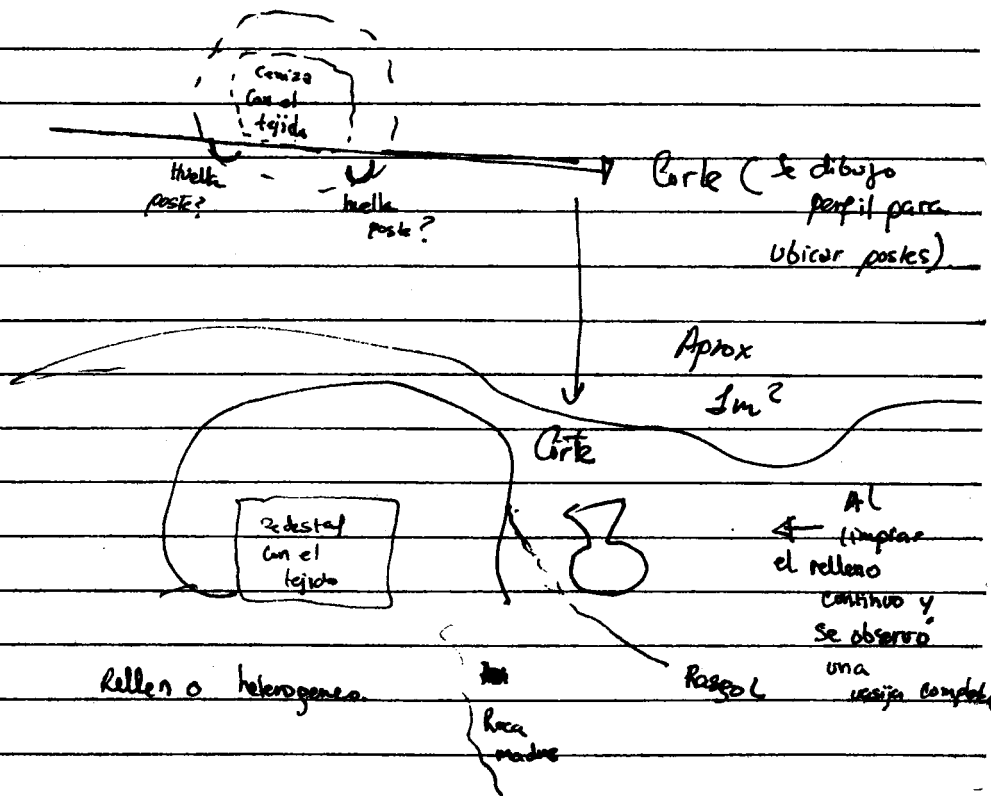 Ceniza
Con el
tejido
Huella
poste?
huella
poste?
Corte (Se dibujo
perfil para
ubicar postes)
Aprox
1m2
Corte
Pedestal
con el
tejido
Al
limpiar
el relleno
continuo y
se observó
una
vasija completa
Relleno heterogeneo
Rasgo 1
Roca
madre